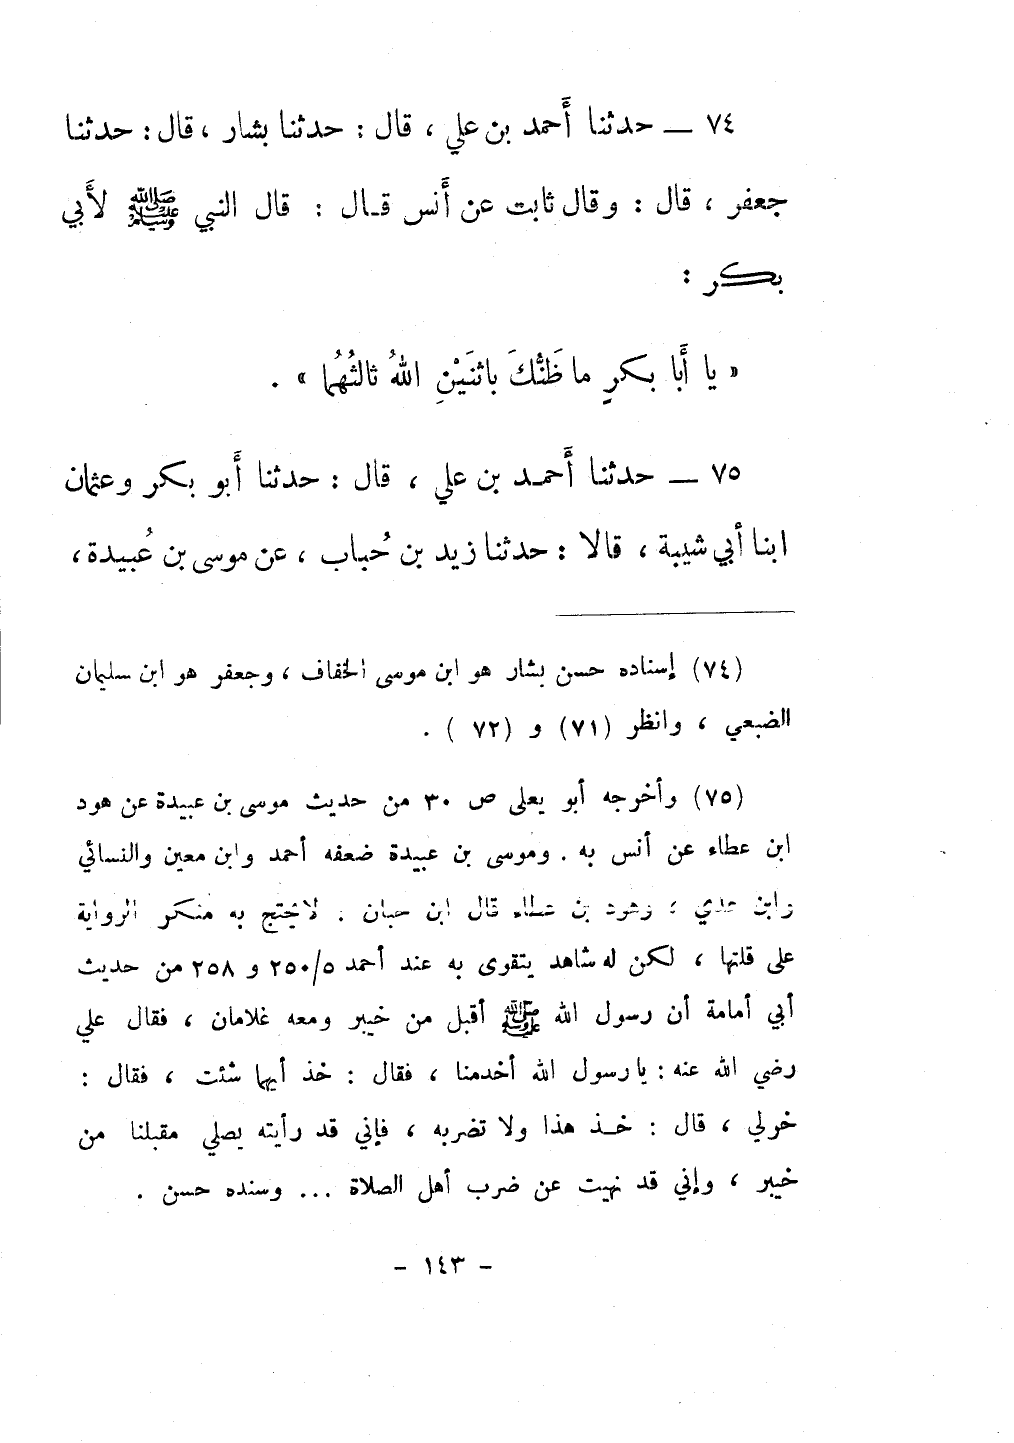 ٧٤ ــ حدثنا أَحمد بن علي ، قال : حدثنا بشار ، قال : حدثنا
جعفر ، قال : وقال ثابت عن أَنس قـال : قال النبي ﷺ لأَبي
بكر :
« يا أَبا بكرٍ ما ظَنُّكَ باثنَيْنِ اللهُ ثالثُهُما » .
٧٥ ــ حدثنا أَحمـد بن علي ، قال : حدثنا أَبو بكر وعثمان
ابنا أبي شيبة ، قالا : حدثنا زيد بن حُباب ، عن موسى بن عُبيدة ،
(٧٤) إسناده حسن بشار هو ابن موسى الخفاف ، وجعفر هو ابن سليمان
الضبعي ، وانظر (٧١) و (٧٢ ) .
(٧٥) وأخرجه أبو يعلى ص ٣٠ من حديث موسى بن عبيدة عن هود
ابن عطاء عن أنس به . وموسى بن عبيدة ضعفه أحمد وابن معين والنسائي
وابن عدي ، وهود بن عطاء قال ابن حبان . لا يحتج به منكر الرواية
على قلتها ، لكن له شاهد يتقوى به عند أحمد ٢٥٠/٥ و ٢٥٨ من حديث
أبي أمامة أن رسول الله ﷺ أقبل من خيبر ومعه غلامان ، فقال علي
رضي الله عنه : يا رسول الله أخدمنا ، فقال : خذ أيهما شئت ، فقال :
خولي ، قال : خـذ هذا ولا تضربه ، فإني قد رأيته يصلي مقبلنا من
خيبر ، وإني قد نهيت عن ضرب أهل الصلاة ... وسنده حسن .
- ١٤٣ -